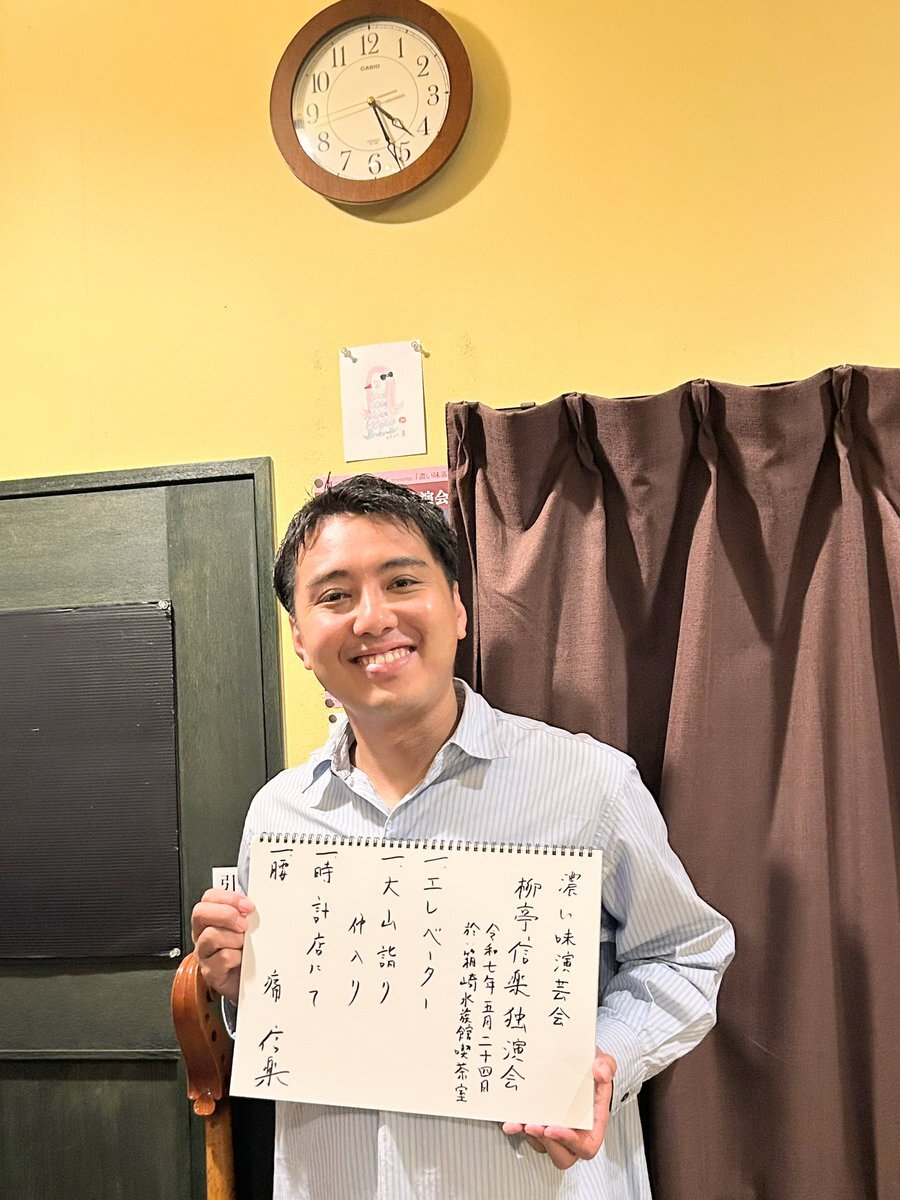 12
1
2
3
4
5
6
7
8
9
10
11
CASIO
「濃い味演
演会
引
濃い味演芸会
柳亭信楽独演会
令和七年五月二十四日
於.箱崎水族館喫茶室
一.エレベーター
一.大山詣り
仲入り
一.時計店にて
一.腰痛
信楽